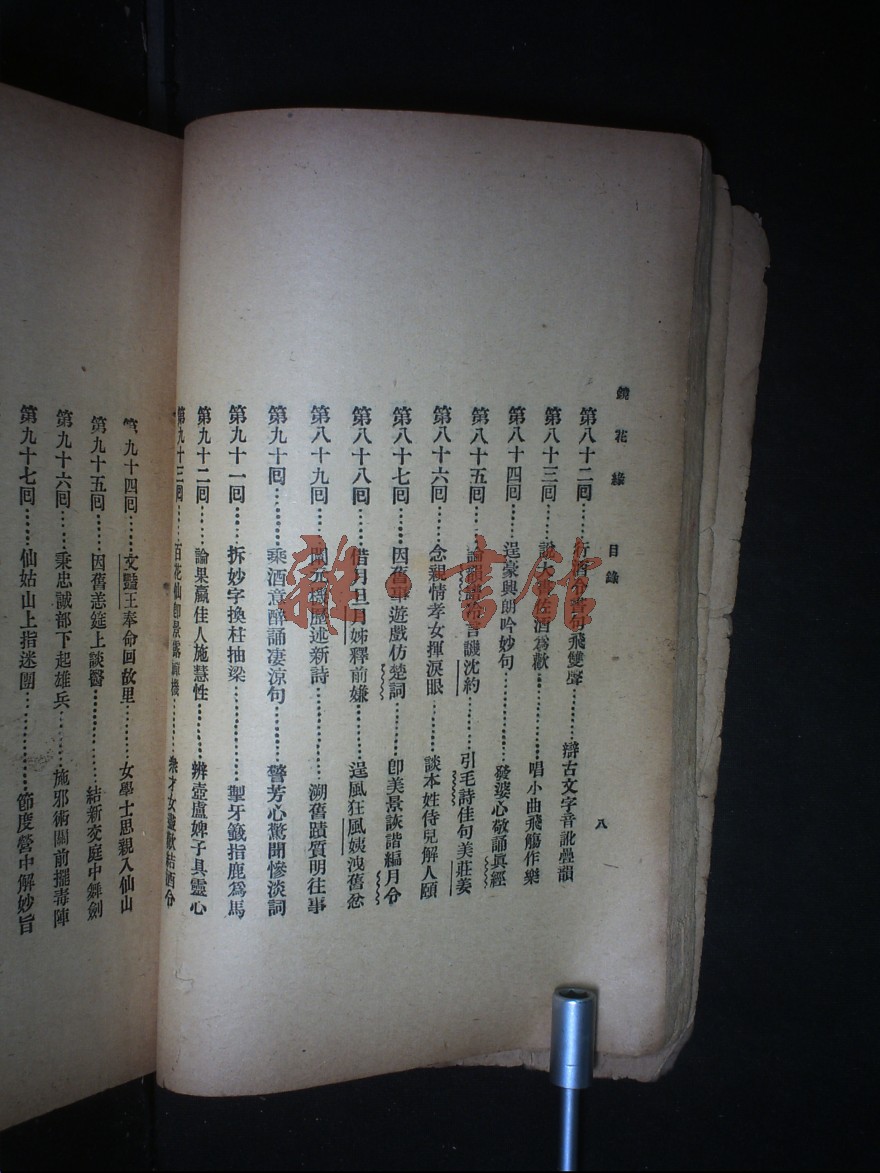 鏡花緣 目錄 八
第八十二回……行酒令書句飛雙聲……辯古文字音訛疊韻
第八十三回……說大書佐酒為歡……唱小曲飛觴作樂
第八十四回……逞豪興朗吟妙句……發婆心敬誦真經
第八十五回……論韻譜冷言譏沈約……引毛詩佳句美莊姜
第八十六回……念親情孝女揮淚眼……談本姓侍兒解人頤
第八十七回……因舊事遊戲仿楚詞……卽美景詼諧編月令
第八十八回……借月旦月姊釋前嫌……逞風狂風姨洩舊忿
第八十九回……闡元機歷述新詩……溯舊蹟質明往事
第九十回……乘酒意醉誦凄涼句……警芳心驚聞慘淡詞
第九十一回……拆妙字換柱抽梁……掣牙籤指鹿爲馬
第九十二回……論果贏佳人施慧性……辨壺盧婢子具靈心
第九十三回……百花仙卽景露禪機……衆才女盡歡結酒令
第九十四回……文豔王奉命回故里……女學士思親入仙山
第九十五回……因舊恙筵上談醫……結新交庭中舞劍
第九十六回……秉忠誠部下起雄兵……施邪術關前擺毒陣
第九十七回……仙姑山上指迷團……節度營中解妙旨
雜·書館